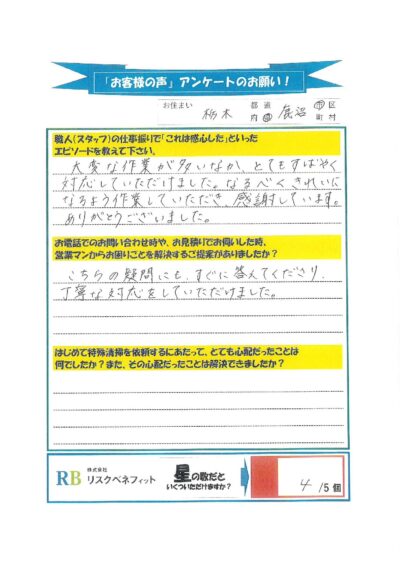 「お客様の声」アンケートのお願い！
お住まい 栃木 都道府県 鹿沼 市区町村
職人（スタッフ）の仕事振りで「これは感心した」といった
エピソードを教えて下さい。
大変な作業が多いなか、とてもすばやく
対応していただけました。なるべくきれいに
なるよう作業していただき、感謝しています。
ありがとうございました。
お電話でのお問い合わせ時や、お見積りでお伺いした時、
営業マンからお困りごとを解決するご提案がありましたか？
こちらの疑問にも、すぐに答えてくださり、
丁寧な対応をしていただけました。
はじめて特殊清掃を依頼するにあたって、とても心配だったことは
何でしたか？また、その心配だったことは解決できましたか？
RB 株式会社 リスクベネフィット
星の数だと
いくついただけますか？
4 /5個